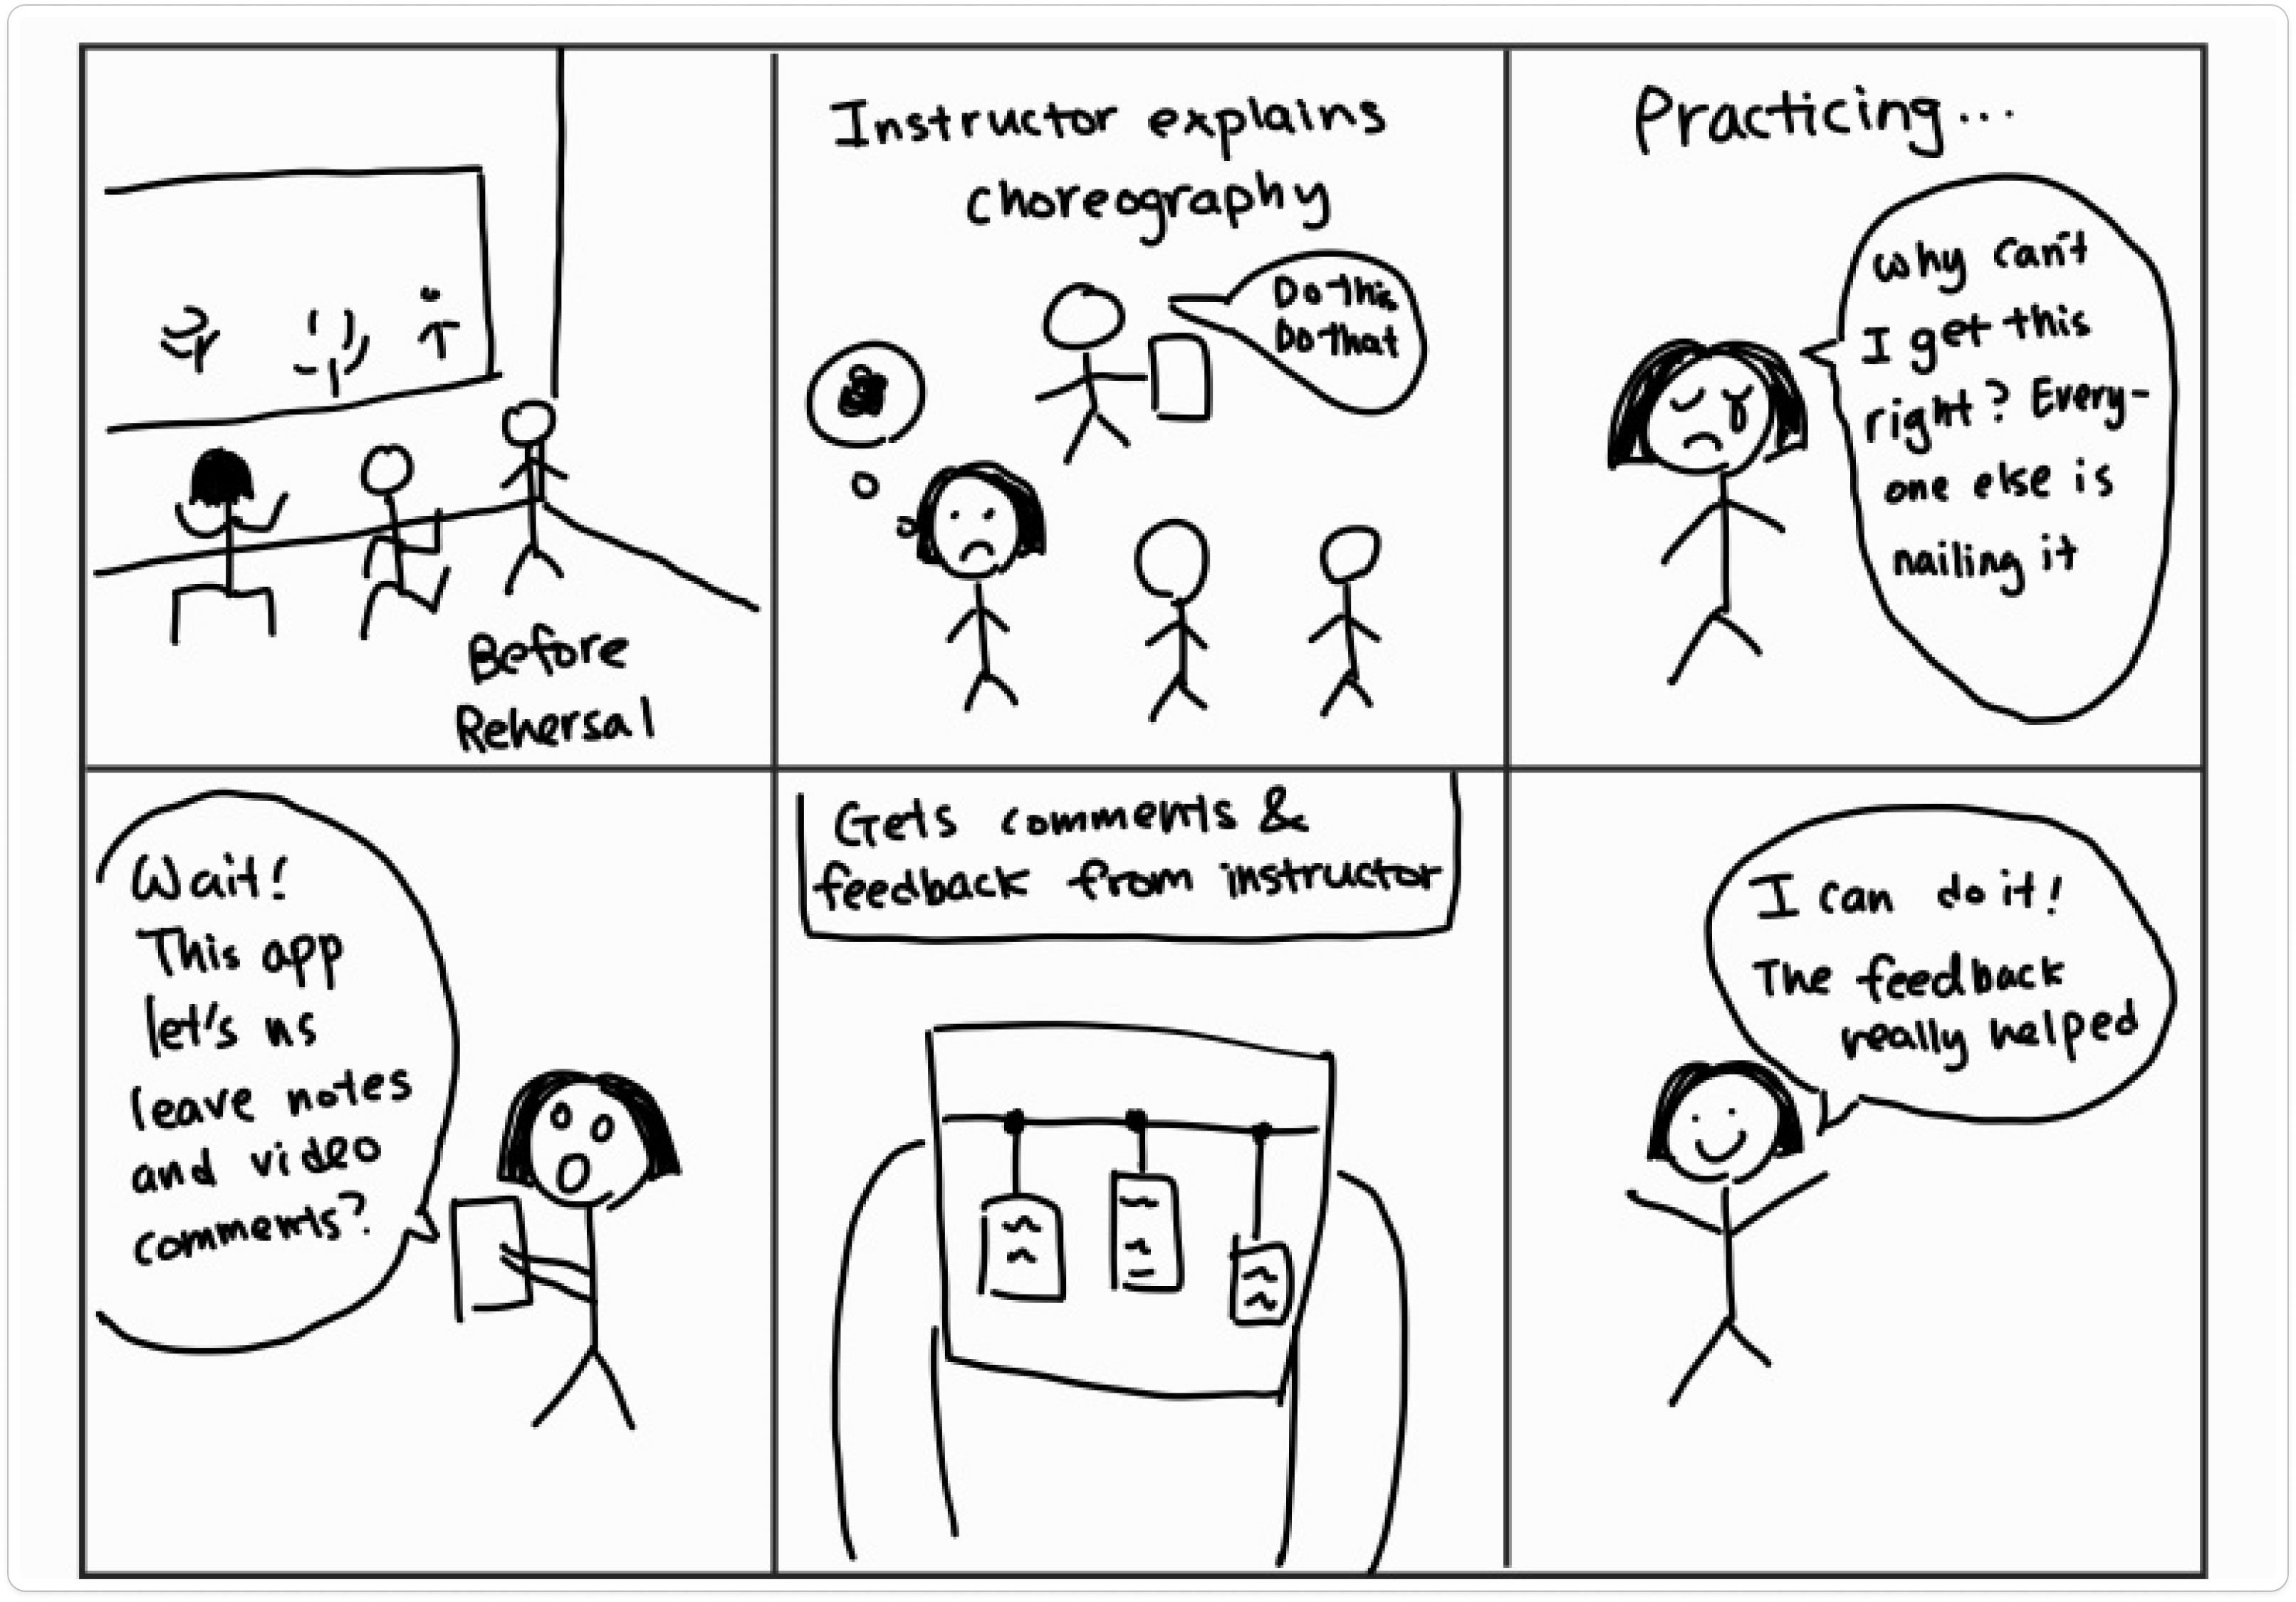 Before
Rehersal
Instructor explains
choreography
Do this
Do that
Practicing...
Why can't
I get this
right? Every-
one else is
nailing it
Wait!
This app
let's us
leave notes
and video
comments?
Gets comments &
feedback from instructor
I can do it!
The feedback
really helped